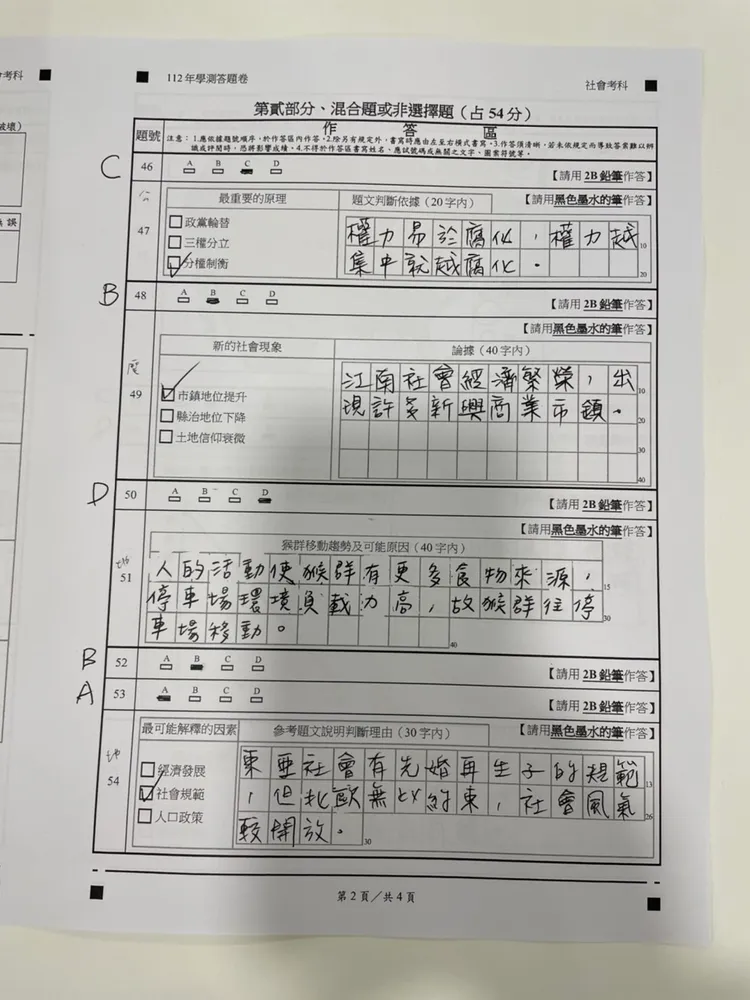 考科
112年學測答題卷
社會考科
第貳部分、混合題或非選擇題（占54分）
題號
作答區
注意：1.應依據題號順序，於作答區內作答。2.除另有規定外，書寫時應由左至右橫式書寫。3.作答須清晰，若未依規定而導致答案難以辨
識或評閱時，恐將影響成績。4.不得於作答區書寫姓名、應試號碼或無關之文字、圖案符號等。
破壞）
誤
C
46
A B C D
【請用2B鉛筆作答】
公
47
最重要的原理
題文判斷依據（20字內）
【請用黑色墨水的筆作答】
政黨輪替
三權分立
分權制衡
權力易於腐化，權力越
10
集中就越腐化。
20
B
48
A B C D
【請用2B鉛筆作答】
【請用黑色墨水的筆作答】
歷
49
新的社會現象
論據（40字內）
市鎮地位提升
縣治地位下降
土地信仰衰微
江南社會經濟繁榮，出
10
現許多新興商業市鎮。
20
30
40
D
50
A B C D
【請用2B鉛筆作答】
【請用黑色墨水的筆作答】
地
51
猴群移動趨勢及可能原因（40字內）
人的活動使猴群有更多食物來源，
15
停車場環境負載力高，故猴群往停
30
車場移動。
40
B
52
A B C D
【請用2B鉛筆作答】
A
53
A B C D
【請用2B鉛筆作答】
地
54
最可能解釋的因素
參考題文說明判斷理由（30字內）
【請用黑色墨水的筆作答】
經濟發展
社會規範
人口政策
東亞社會有先婚再生子的規範
13
，但北歐無此約束，社會風氣
26
較開放。
30
第2頁／共4頁